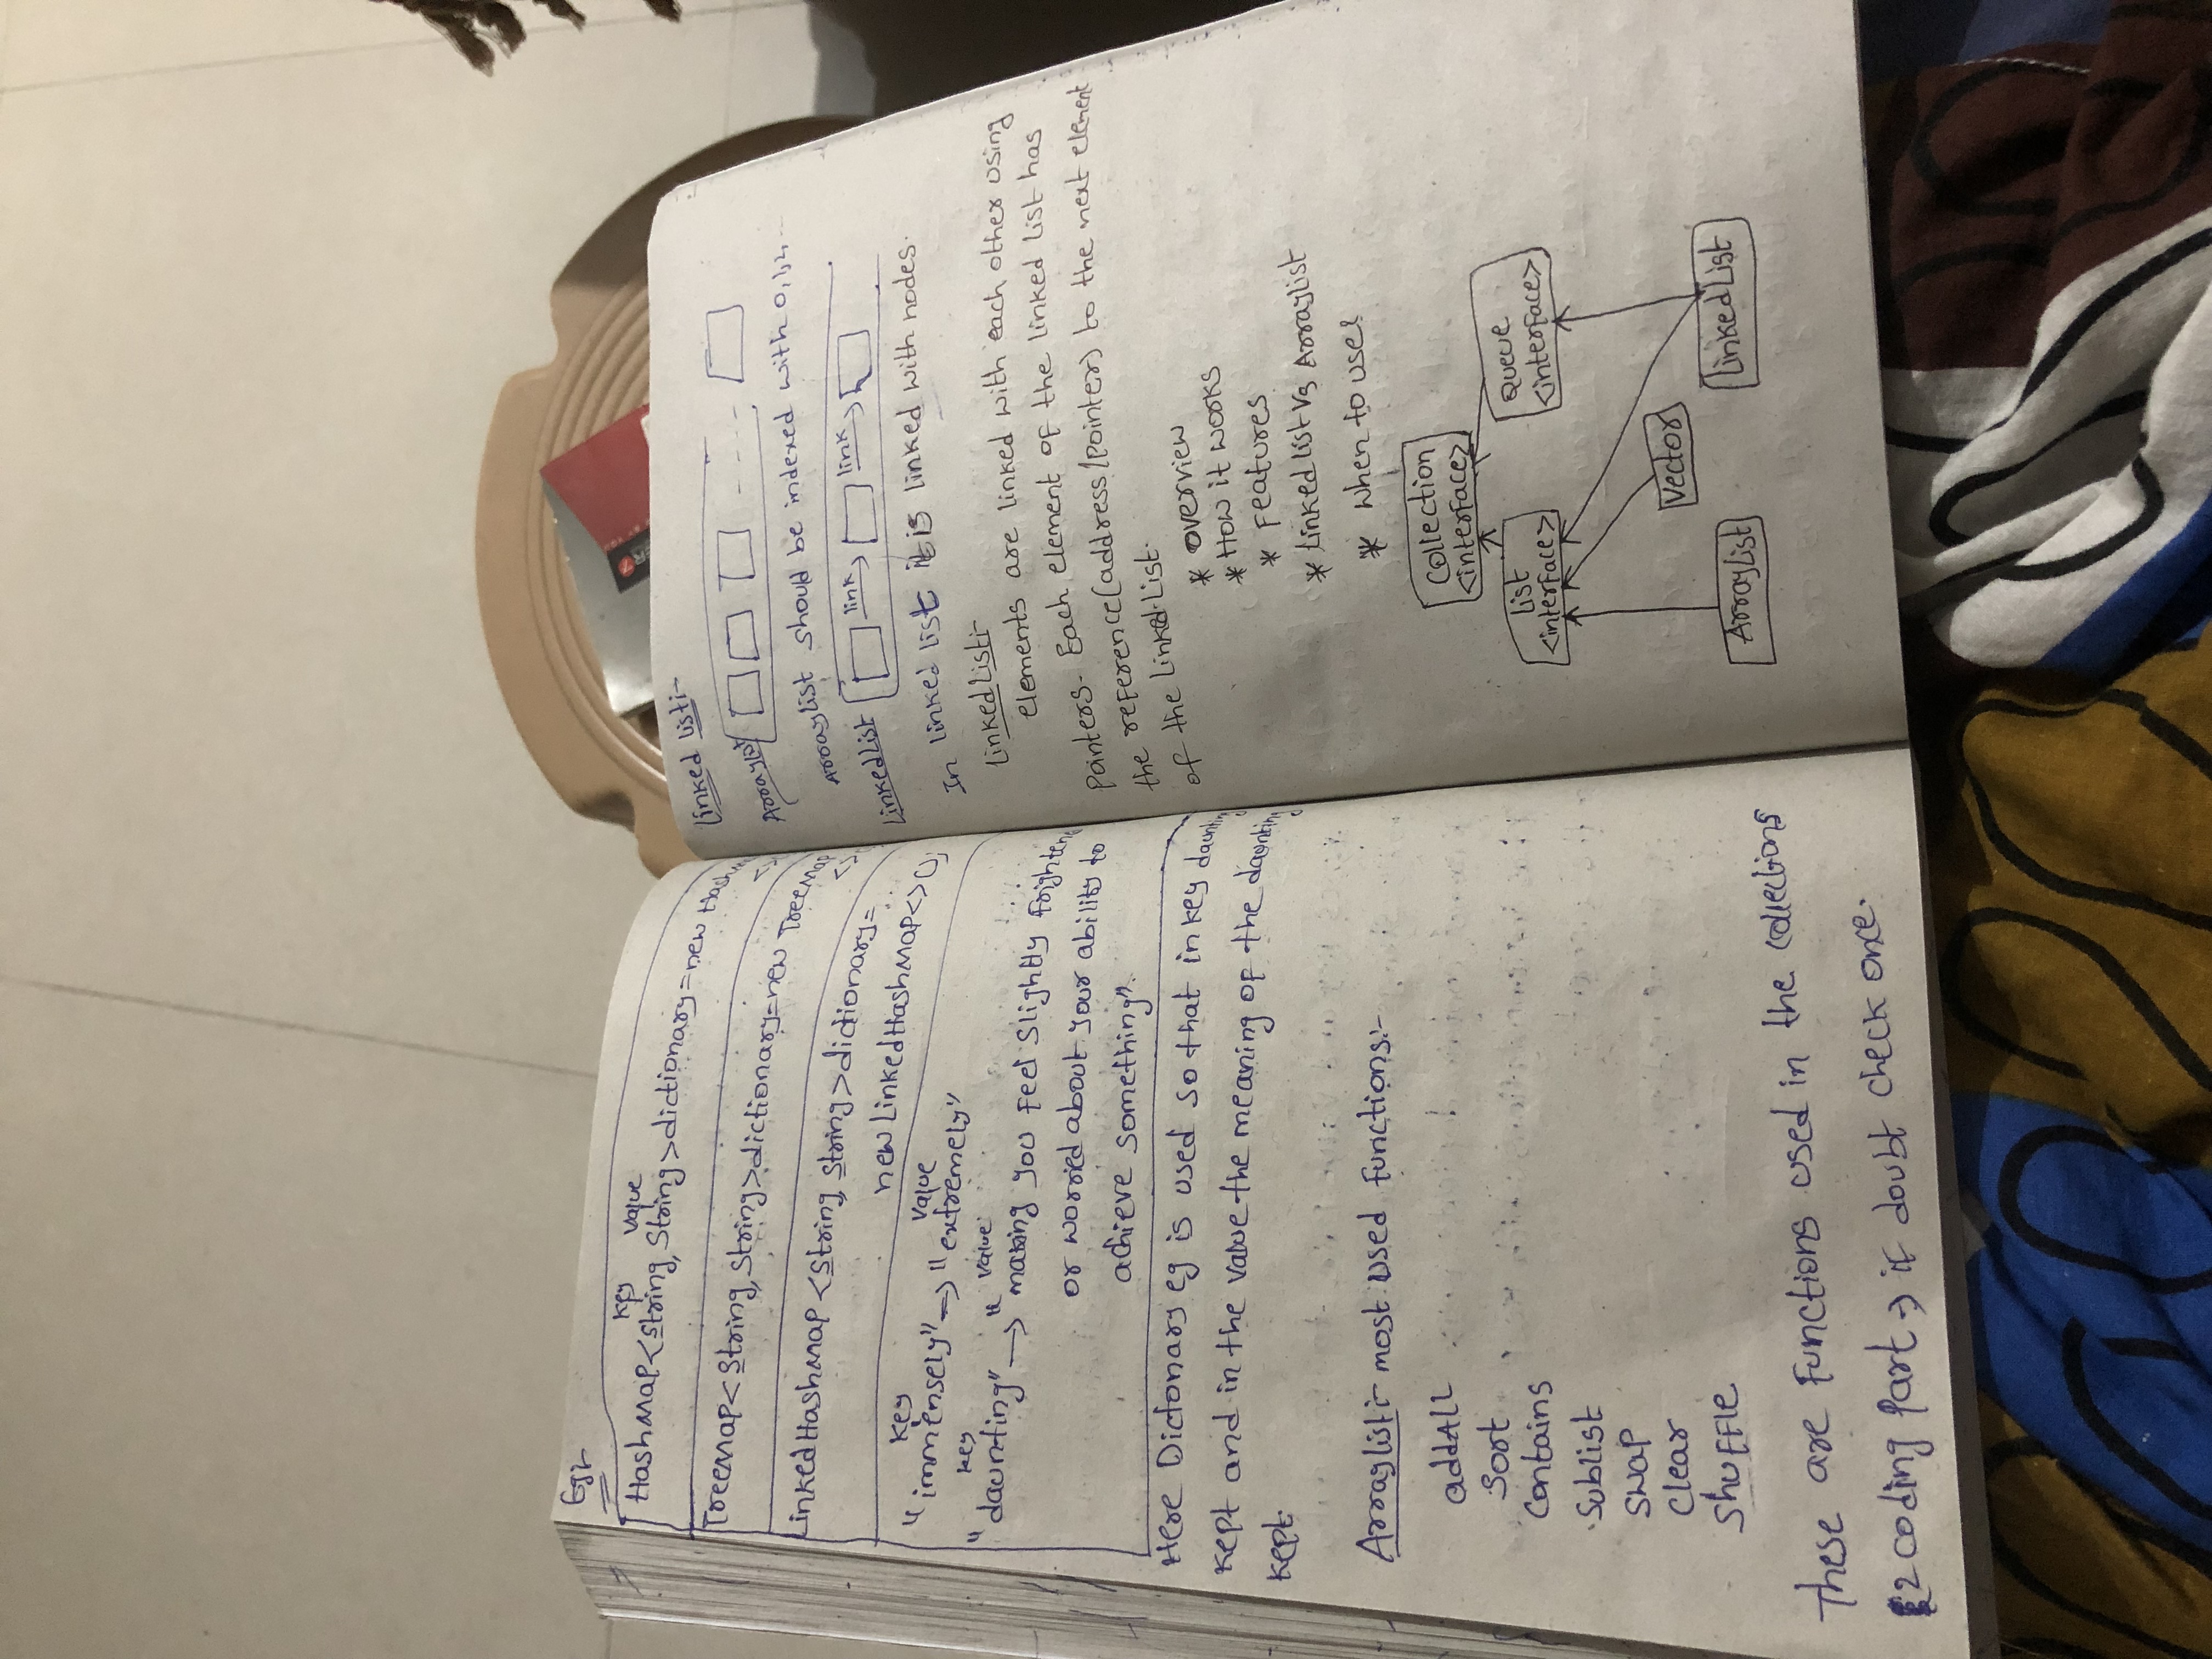 Eg:-
Key Value
HashMap<String, String>dictionary=new Hash
<>
TreeMap<String, String>dictionary=new TreeMap
<>
LinkedHashMap<String, String>dictionary=
new LinkedHashMap<>();
Key Value
"immensely" → "extremely"
key Value
"daunting" → "making you feel slightly frighten
or worried about your ability to
achieve something".
Here Dictonary eg is used so that in key daunting
kept and in the value the meaning of the daunting
kept.
Arraylist:- most used functions:-
addAll
Sort
Contains
Sublist
Swap
Clear
Shuffle
These are functions used in the collections
2 coding part → if doubt check once.
Linked list:-
Arraylist
Arraylist should be indexed with 0,1,2, ...
LinkedList link link
In linked list it is linked with nodes.
LinkedList:-
elements are linked with each other using
pointers. Each element of the linked list has
the reference(address/pointer) to the next element
of the Linked List.
* overview
* How it works
* Features
* Linked list Vs Arraylist
* when to use?
Collection
<interface>
List
<interface>
Queue
<interface>
Vector
ArrayList
LinkedList